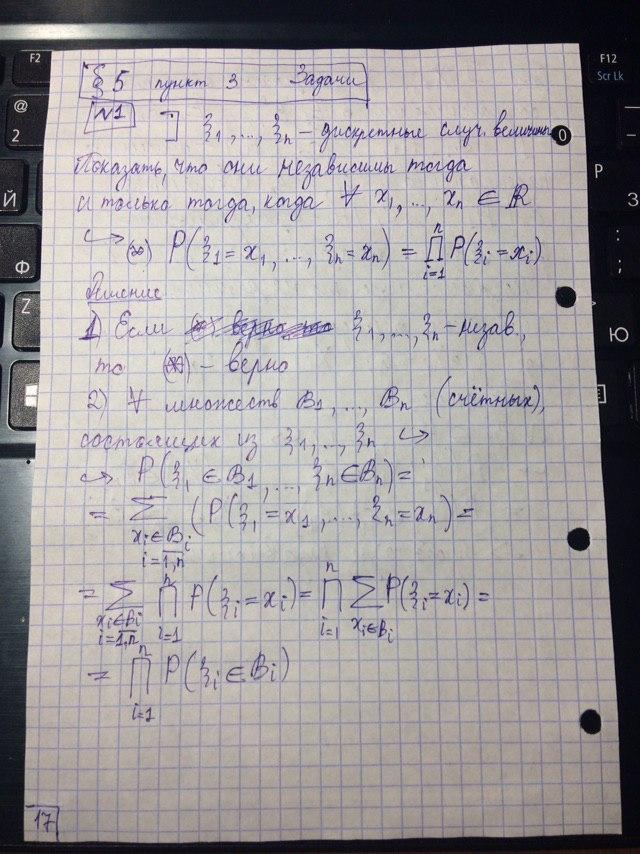 § 5 пункт 3 Задачи
№1 ] ξ₁,...,ξₙ – дискретные случ. величины
Показать, что они независимы тогда
и только тогда, когда ∀ x₁,..., xₙ ∈ ℝ
↪ (∞) P(ξ₁=x₁,..., ξₙ=xₙ) = ∏ᵢ₌₁ⁿ P(ξᵢ=xᵢ)
Решение
1) Если ξ₁,...,ξₙ – незав.,
то – верно
2) ∀ множеств B₁,..., Bₙ (счётных),
состоящих из ξ₁,..., ξₙ ↪
↪ P(ξ₁ ∈ B₁,..., ξₙ ∈ Bₙ) =
= ∑ (P(ξ₁=x₁,..., ξₙ=xₙ) =
xᵢ ∈ Bᵢ
i=1,n
= ∑ ∏ᵢ₌₁ⁿ P(ξᵢ=xᵢ) = ∏ᵢ₌₁ⁿ ∑ P(ξᵢ=xᵢ) =
xᵢ∈Bᵢ xᵢ∈Bᵢ
i=1,n
= ∏ᵢ₌₁ⁿ P(ξᵢ ∈ Bᵢ)
17
F2
@
2
Й
Ф
Z
F12
Scr Lk
0
P
З
Ю